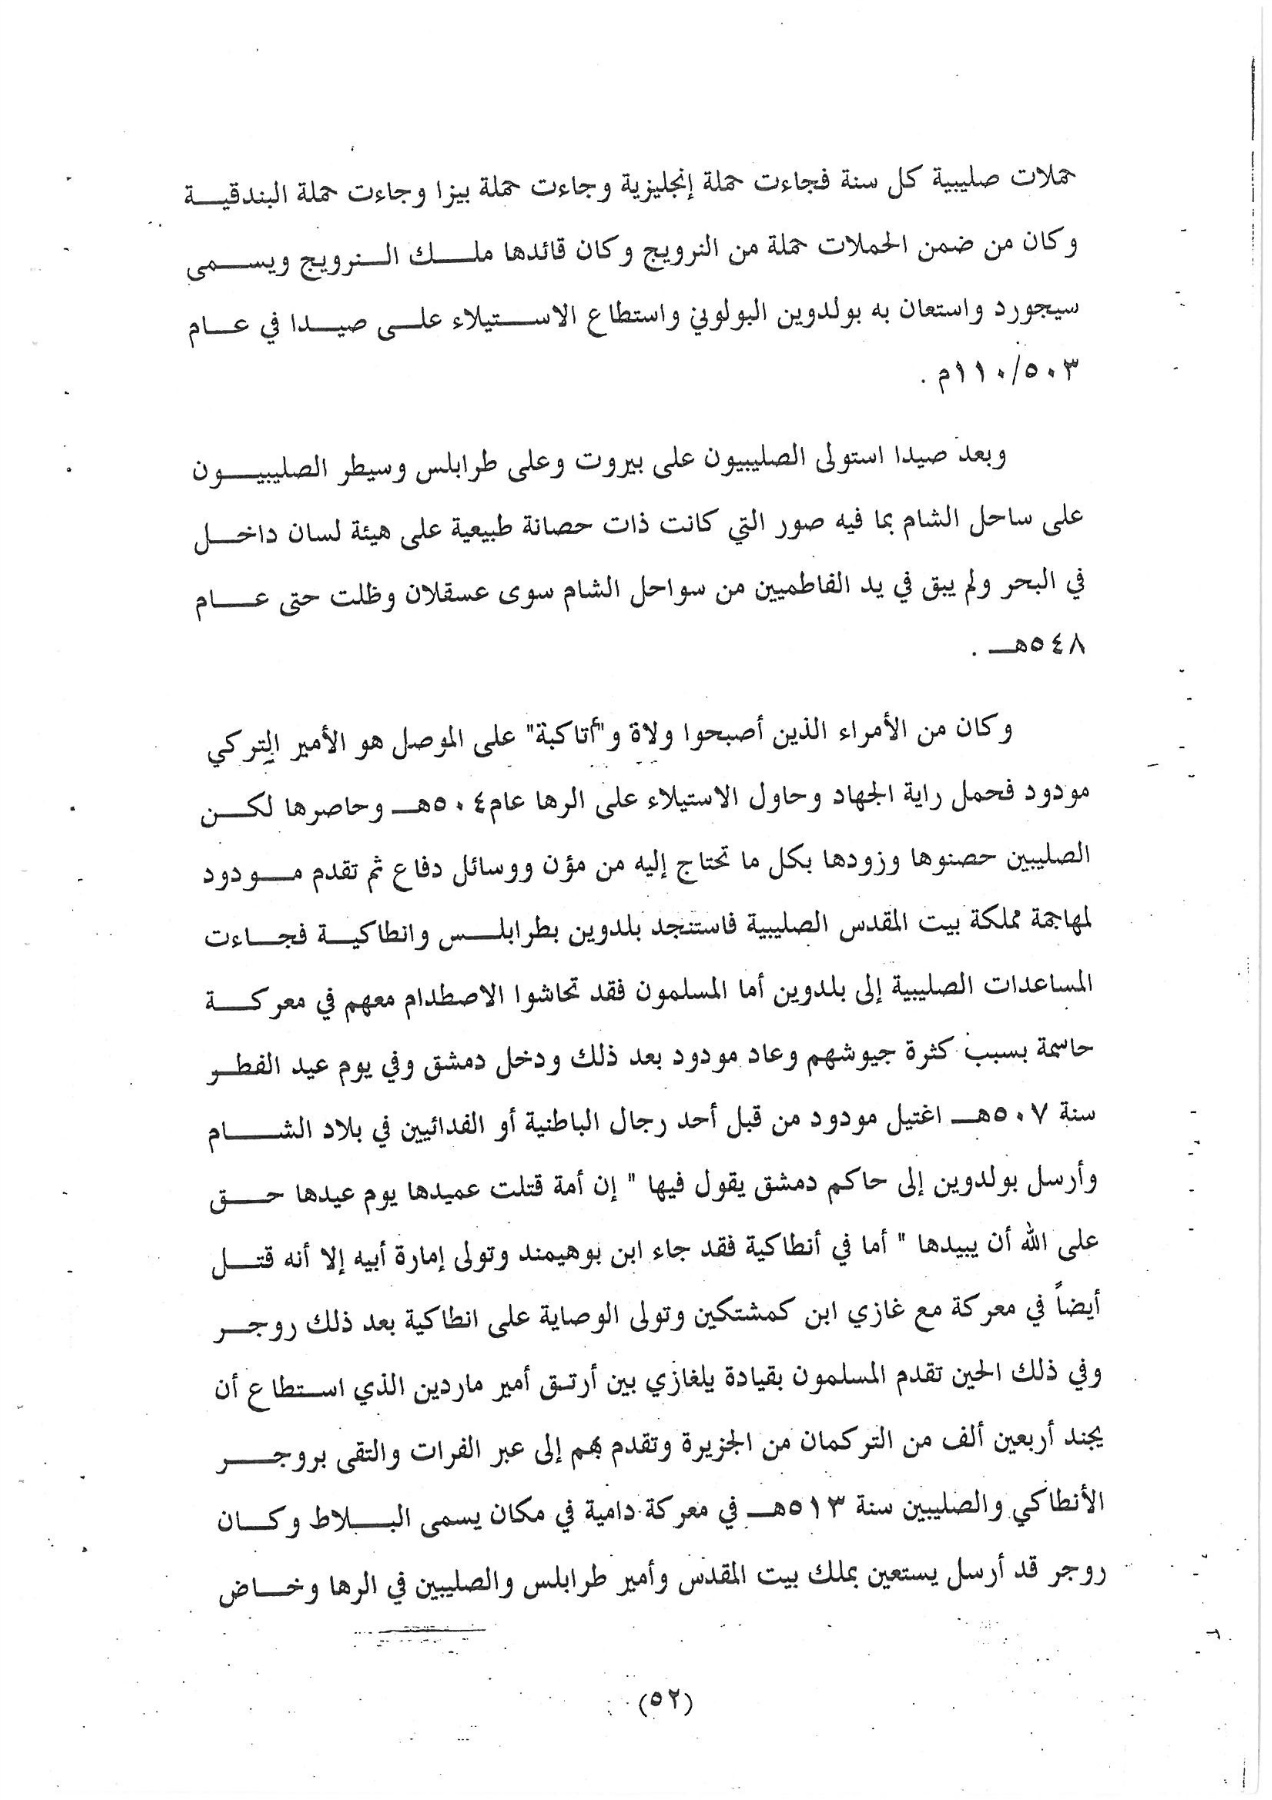 حملات صليبية كل سنة فجاءت حملة إنجليزية وجاءت حملة بيزا وجاءت حملة البندقية
وكان من ضمن الحملات حملة من النرويج وكان قائدها ملك النرويج ويسمى
سيجورد واستعان به بولدوين البولوني واستطاع الاستيلاء على صيدا في عام
٥٠٣/١١٠م .
وبعد صيدا استولى الصليبيون على بيروت وعلى طرابلس وسيطر الصليبيون
على ساحل الشام بما فيه صور التي كانت ذات حصانة طبيعية على هيئة لسان داخل
في البحر ولم يبق في يد الفاطميين من سواحل الشام سوى عسقلان وظلت حتى عام
٥٤٨هـ .
وكان من الأمراء الذين أصبحوا ولاة و"أتاكبة" على الموصل هو الأمير التركي
مودود فحمل راية الجهاد وحاول الاستيلاء على الرها عام٥٠٤هـ وحاصرها لكن
الصليبين حصنوها وزودها بكل ما تحتاج إليه من مؤن ووسائل دفاع ثم تقدم مودود
لمهاجمة مملكة بيت المقدس الصليبية فاستنجد بلدوين بطرابلس وانطاكية فجاءت
المساعدات الصليبية إلى بلدوين أما المسلمون فقد تحاشوا الاصطدام معهم في معركة
حاسمة بسبب كثرة جيوشهم وعاد مودود بعد ذلك ودخل دمشق وفي يوم عيد الفطر
سنة ٥٠٧هـ اغتيل مودود من قبل أحد رجال الباطنية أو الفدائيين في بلاد الشام
وأرسل بولدوين إلى حاكم دمشق يقول فيها " إن أمة قتلت عميدها يوم عيدها حق
على الله أن يبيدها " أما في أنطاكية فقد جاء ابن بوهيمند وتولى إمارة أبيه إلا أنه قتل
أيضاً في معركة مع غازي ابن كمشتكين وتولى الوصاية على انطاكية بعد ذلك روجر
وفي ذلك الحين تقدم المسلمون بقيادة يلغازي بين أرتق أمير ماردين الذي استطاع أن
يجند أربعين ألف من التركمان من الجزيرة وتقدم بهم إلى عبر الفرات والتقى بروجر
الأنطاكي والصليبين سنة ٥١٣هـ في معركة دامية في مكان يسمى البلاط وكان
روجر قد أرسل يستعين بملك بيت المقدس وأمير طرابلس والصليبين في الرها وخاض
(٥٢)